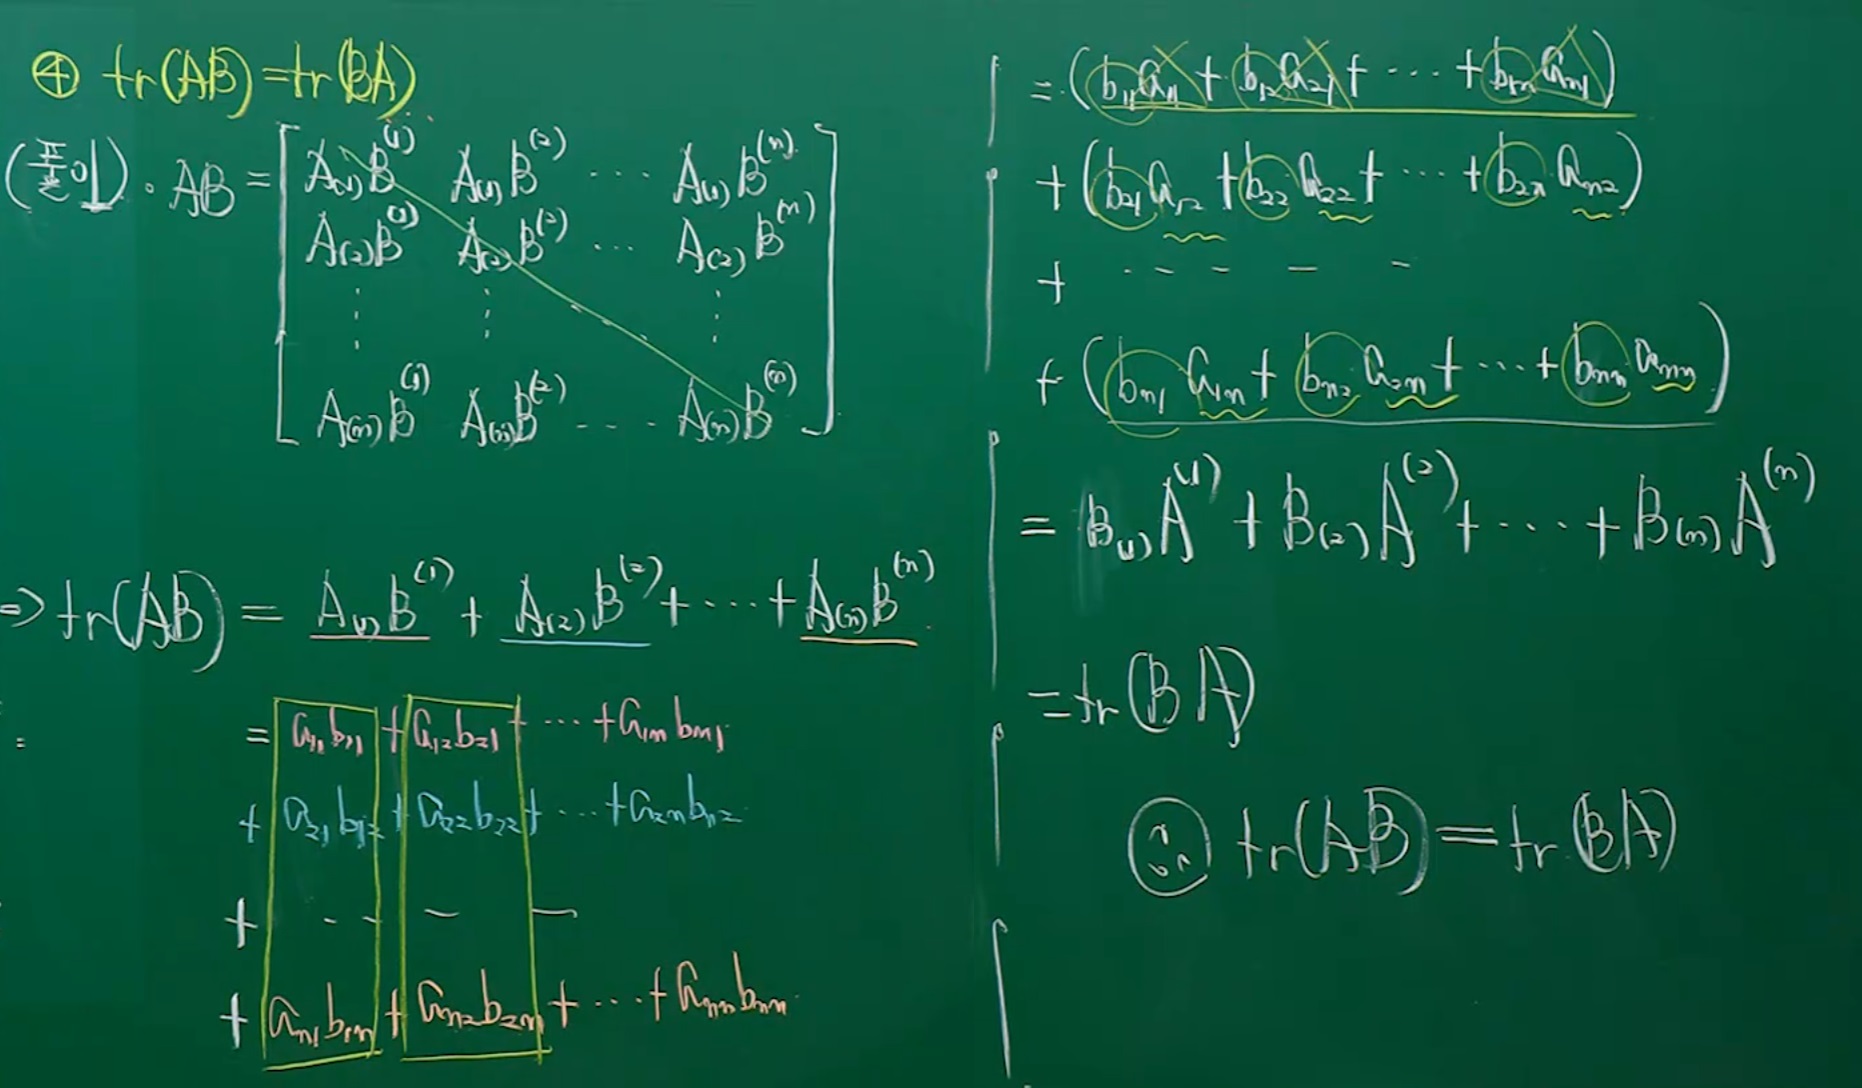 ④ tr(AB)=tr(BA)
(풀이). AB = [ A₍₁₎B⁽¹⁾ A₍₁₎B⁽²⁾ ⋯ A₍₁₎B⁽ⁿ⁾
A₍₂₎B⁽¹⁾ A₍₂₎B⁽²⁾ ⋯ A₍₂₎B⁽ⁿ⁾
⋮ ⋮ ⋮
A₍ₙ₎B⁽¹⁾ A₍ₙ₎B⁽²⁾ ⋯ A₍ₙ₎B⁽ⁿ⁾ ]
⇒ tr(AB) = A₍₁₎B⁽¹⁾ + A₍₂₎B⁽²⁾ + ⋯ + A₍ₙ₎B⁽ⁿ⁾
= a₁₁b₁₁ + a₁₂b₂₁ + ⋯ + a₁ₙbₙ₁
+ a₂₁b₁₂ + a₂₂b₂₂ + ⋯ + a₂ₙbₙ₂
+ ⋯
+ aₙ₁b₁ₙ + aₙ₂b₂ₙ + ⋯ + aₙₙbₙₙ
= (b₁₁a₁₁ + b₁₂a₂₁ + ⋯ + b₁ₙaₙ₁)
+ (b₂₁a₁₂ + b₂₂a₂₂ + ⋯ + b₂ₙaₙ₂)
+ ⋯
+ (bₙ₁a₁ₙ + bₙ₂a₂ₙ + ⋯ + bₙₙaₙₙ)
= B₍₁₎A⁽¹⁾ + B₍₂₎A⁽²⁾ + ⋯ + B₍ₙ₎A⁽ⁿ⁾
= tr(BA)
∴ tr(AB) = tr(BA)